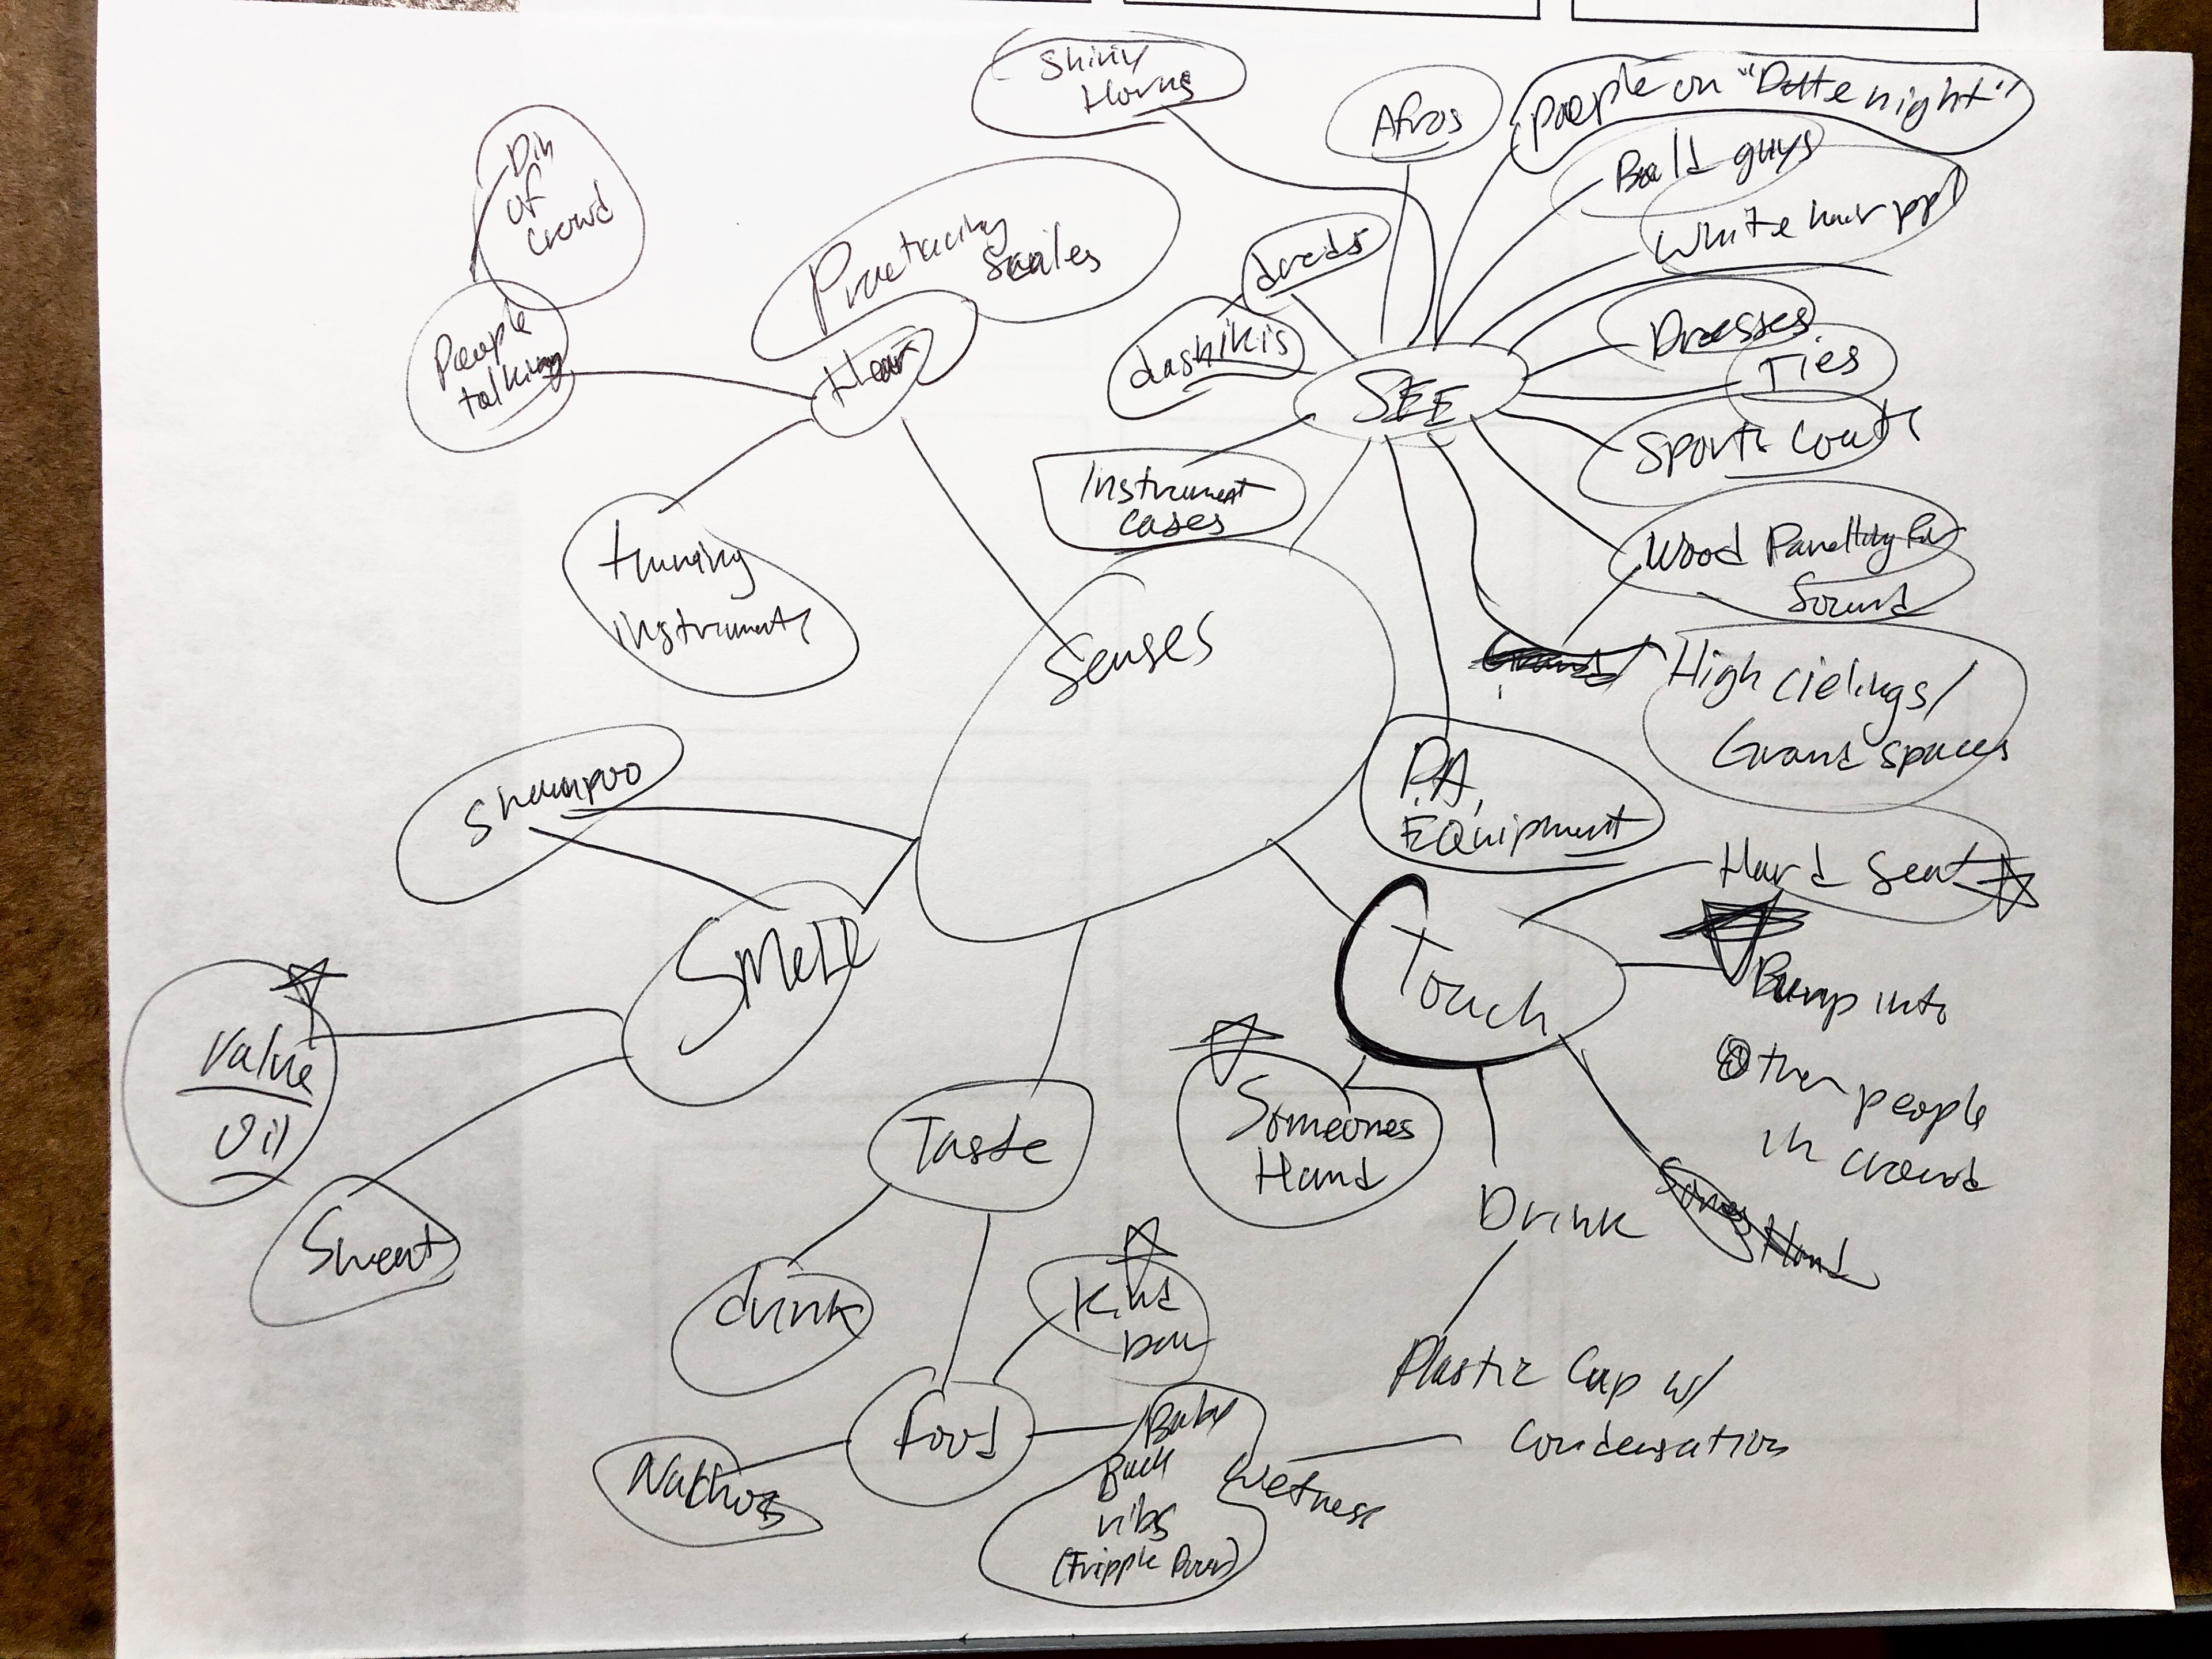 Shiny
Horns
Afros
people on "Date night"
Bald guys
White hair ppl
Din
of
crowd
Practicing
Scales
dreds
dashikis
People
talking
Hear
SEE
Dresses
Ties
Sports Coats
Instrument
cases
tuning
instruments
Wood Panelling for
Sound
Senses
High cielings/
Grand spaces
Shampoo
P.A.
EQuipment
Hard Seat
SMell
Touch
Bump into
Other people
in crowd
Valve
Oil
Someones
Hand
Taste
Sweat
Drink
drink
Kind
bar
Plastic Cup w/
Condensation
food
Nachos
Baby
Back
ribs
Wetness